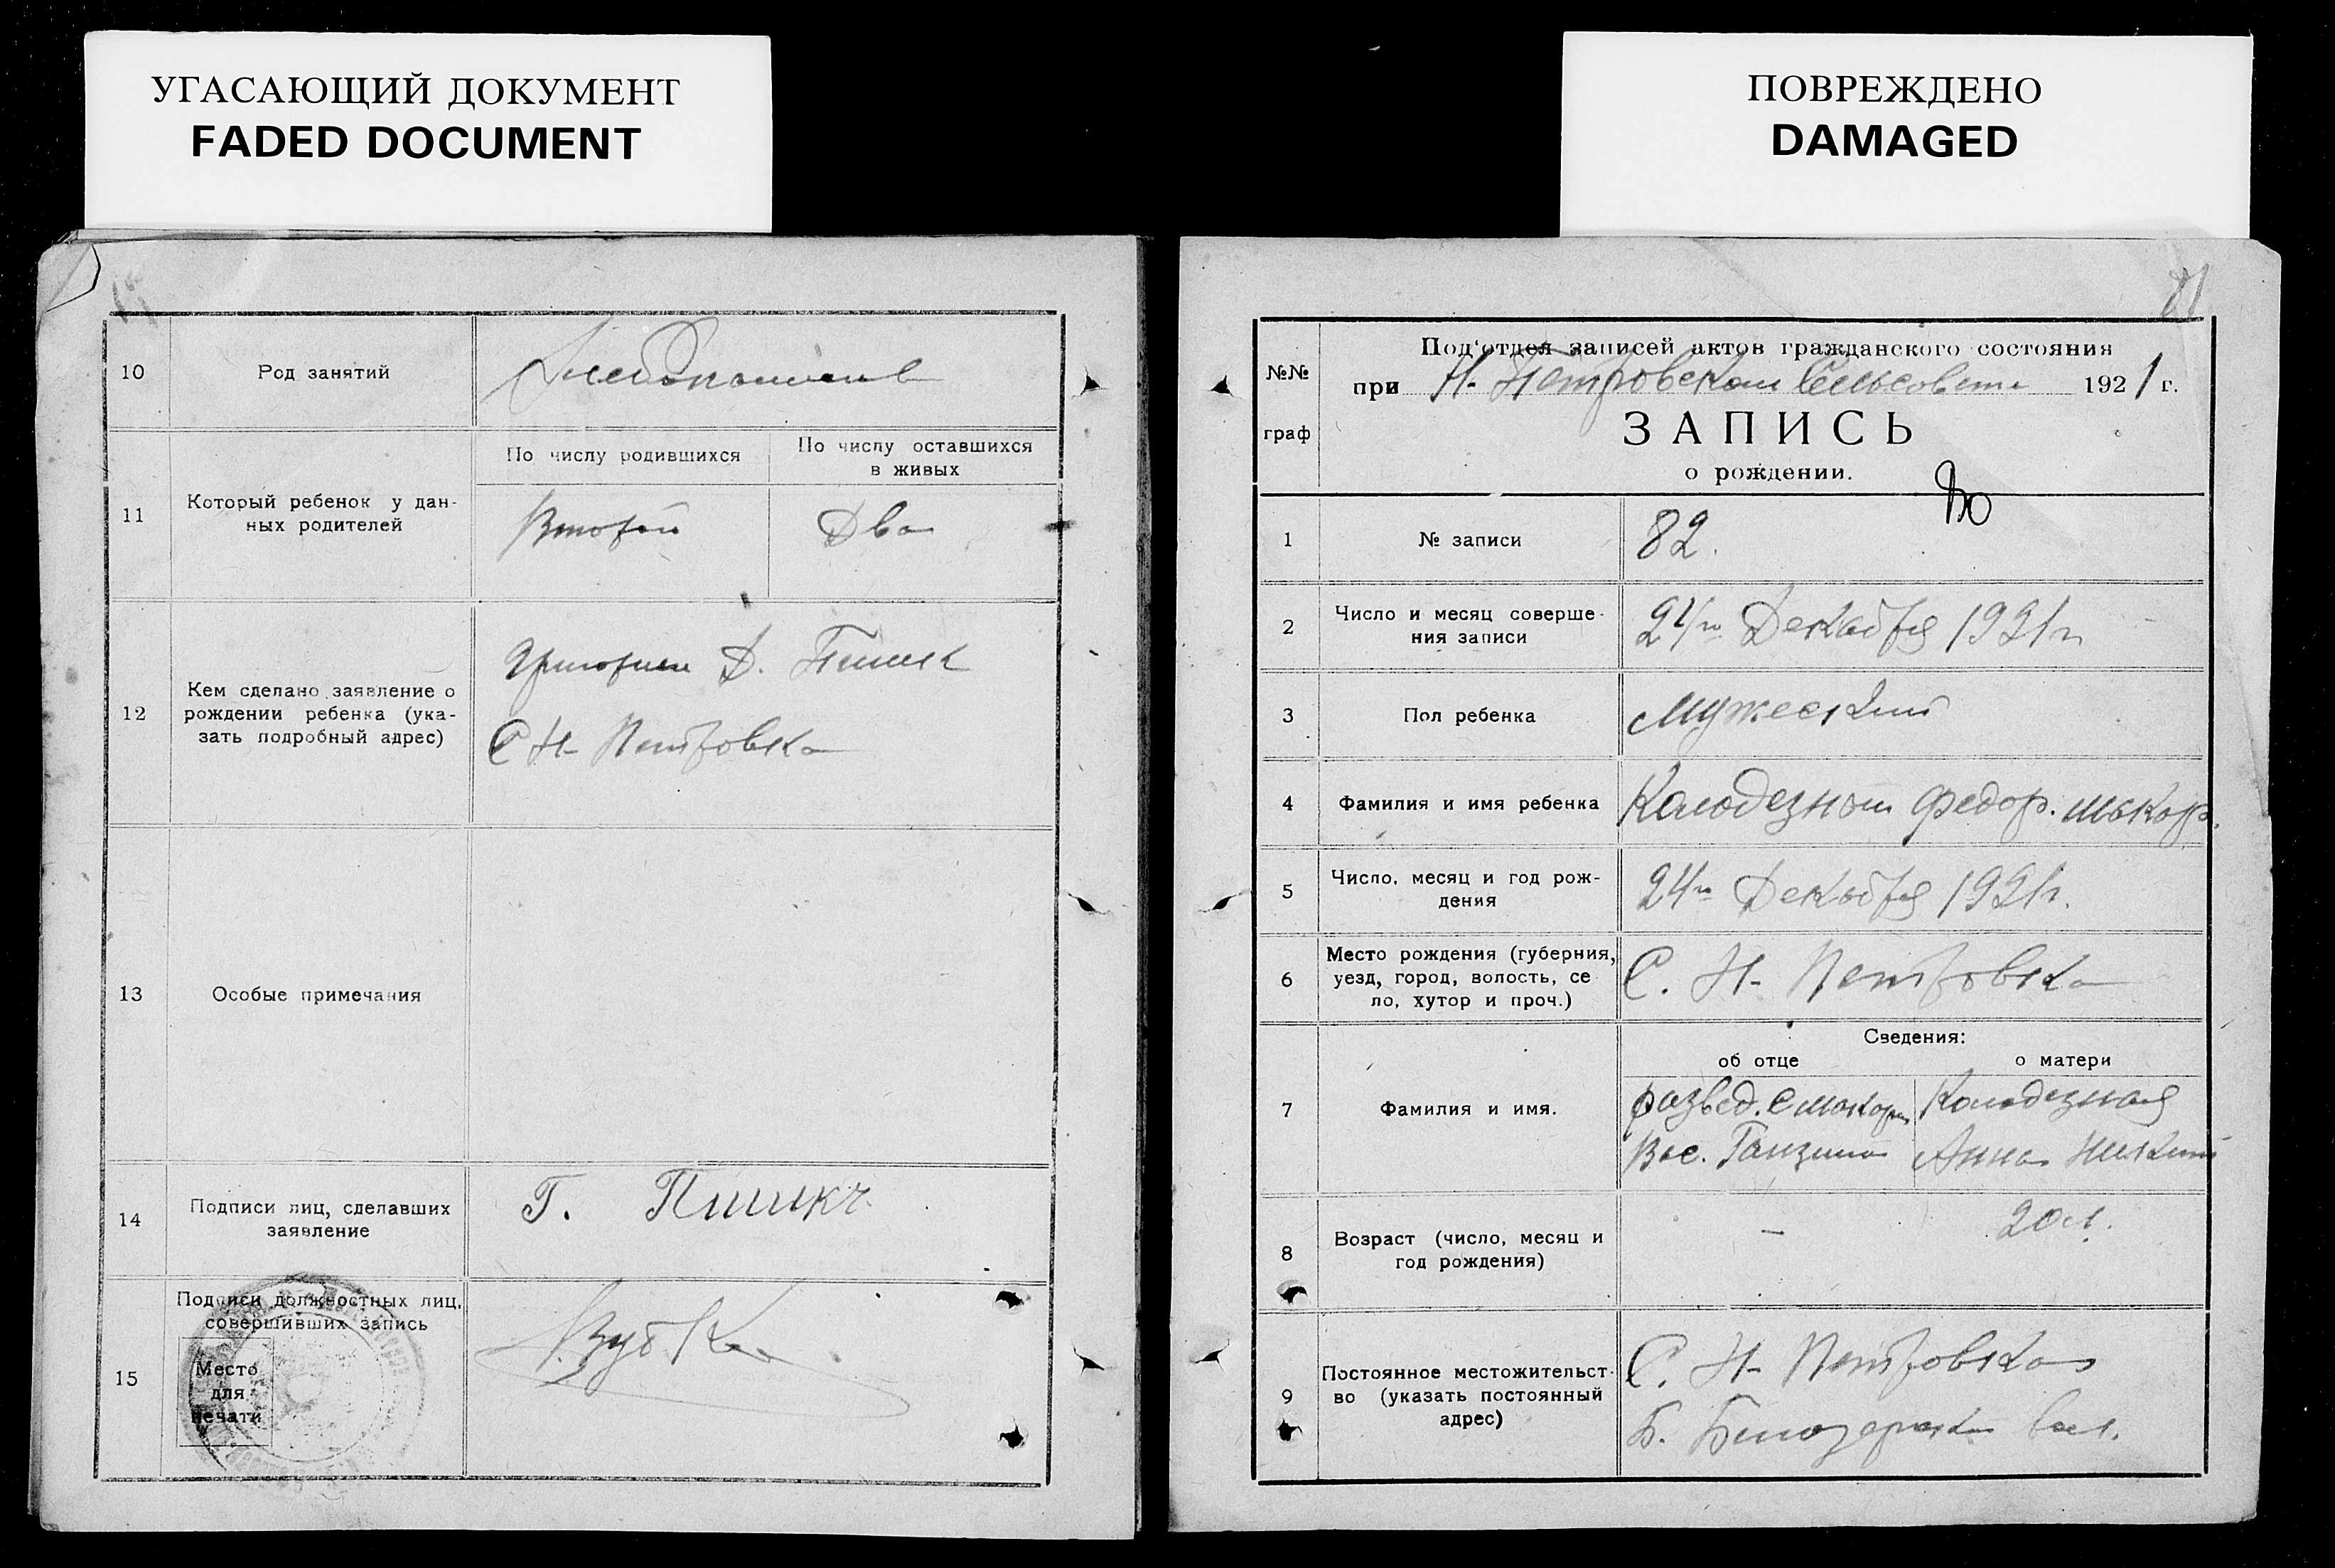 УГАСАЮЩИЙ ДОКУМЕНТ
FADED DOCUMENT
10
Род занятий
11
Который ребенок у дан-
ных родителей
По числу родившихся
Второй
По числу оставшихся
в живых
Два
12
Кем сделано заявление о
рождении ребенка (ука-
зать подробный адрес)
С Н- Петровка
13
Особые примечания
14
Подписи лиц, сделавших
заявление
Г.
15
Подписи должностных лиц,
совершивших запись
Место
для
печати
ПОВРЕЖДЕНО
DAMAGED
81
№№
граф
Под'отдел записей актов гражданского состояния
при Н- Петровском Сельсовете 1921 г.
ЗАПИСЬ
о рождении.
1
№ записи
82.
2
Число и месяц соверше-
ния записи
24го Декабря 1921г
3
Пол ребенка
Мужеский
4
Фамилия и имя ребенка
Колодезной Федор.
5
Число, месяц и год рож-
дения
24го Декабря 1921г.
6
Место рождения (губерния,
уезд, город, волость, се
ло, хутор и проч.)
С. Н- Петровка
Сведения:
об отце
о матери
7
Фамилия и имя.
развед. с
Вас.
Колодезная
Анна
8
Возраст (число, месяц и
год рождения)
—
20 л.
9
Постоянное местожительст-
во (указать постоянный
адрес)
С. Н- Петровка
Б. Белозерская вол.